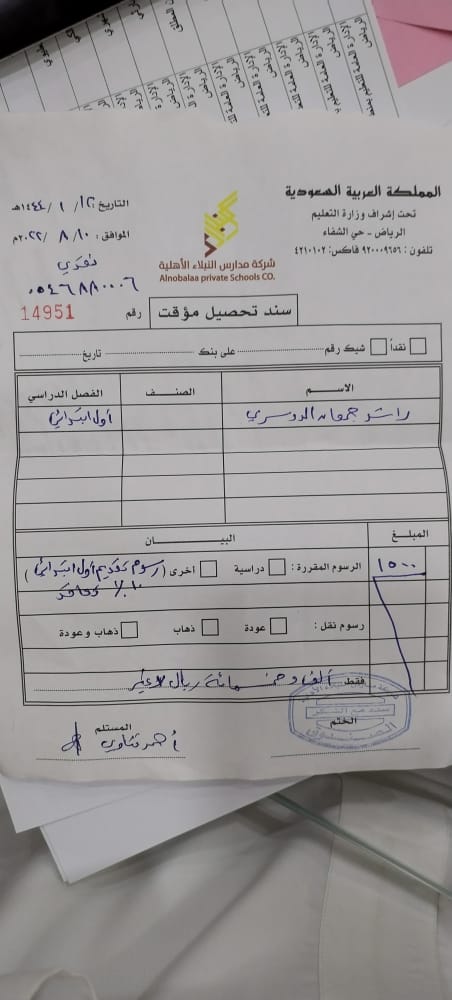 المملكة العربية السعودية
تحت إشراف وزارة التعليم
الرياض - حي الشفاء
تلفون : ٩٢٠٠٠٩٦٥٦ فاكس: ٤٢١٠١٠٢
شركة مدارس النبلاء الأهلية
Alnobalaa private Schools CO.
التاريخ ١٢/ ١ /١٤٤٤هـ
الموافق : ١٠/ ٨ /٢٠٢٢م
٠٥٤٦٨٨٠٠٠٦
سند تحصيل مؤقت
رقم 14951
نقداً شيك رقم على بنك تاريخ
الاســم الصنـف الفصل الدراسي
راشد جمعان الدوسري أول ابتدائي
المبلـغ البيـــان
١٥٠٠ الرسوم المقررة : دراسية اخرى (رسوم تقديم أول ابتدائي)
رسوم نقل : عودة ذهاب ذهاب وعودة
فقط ألف وخمسمائة ريال لاغير
الختم
المستلم